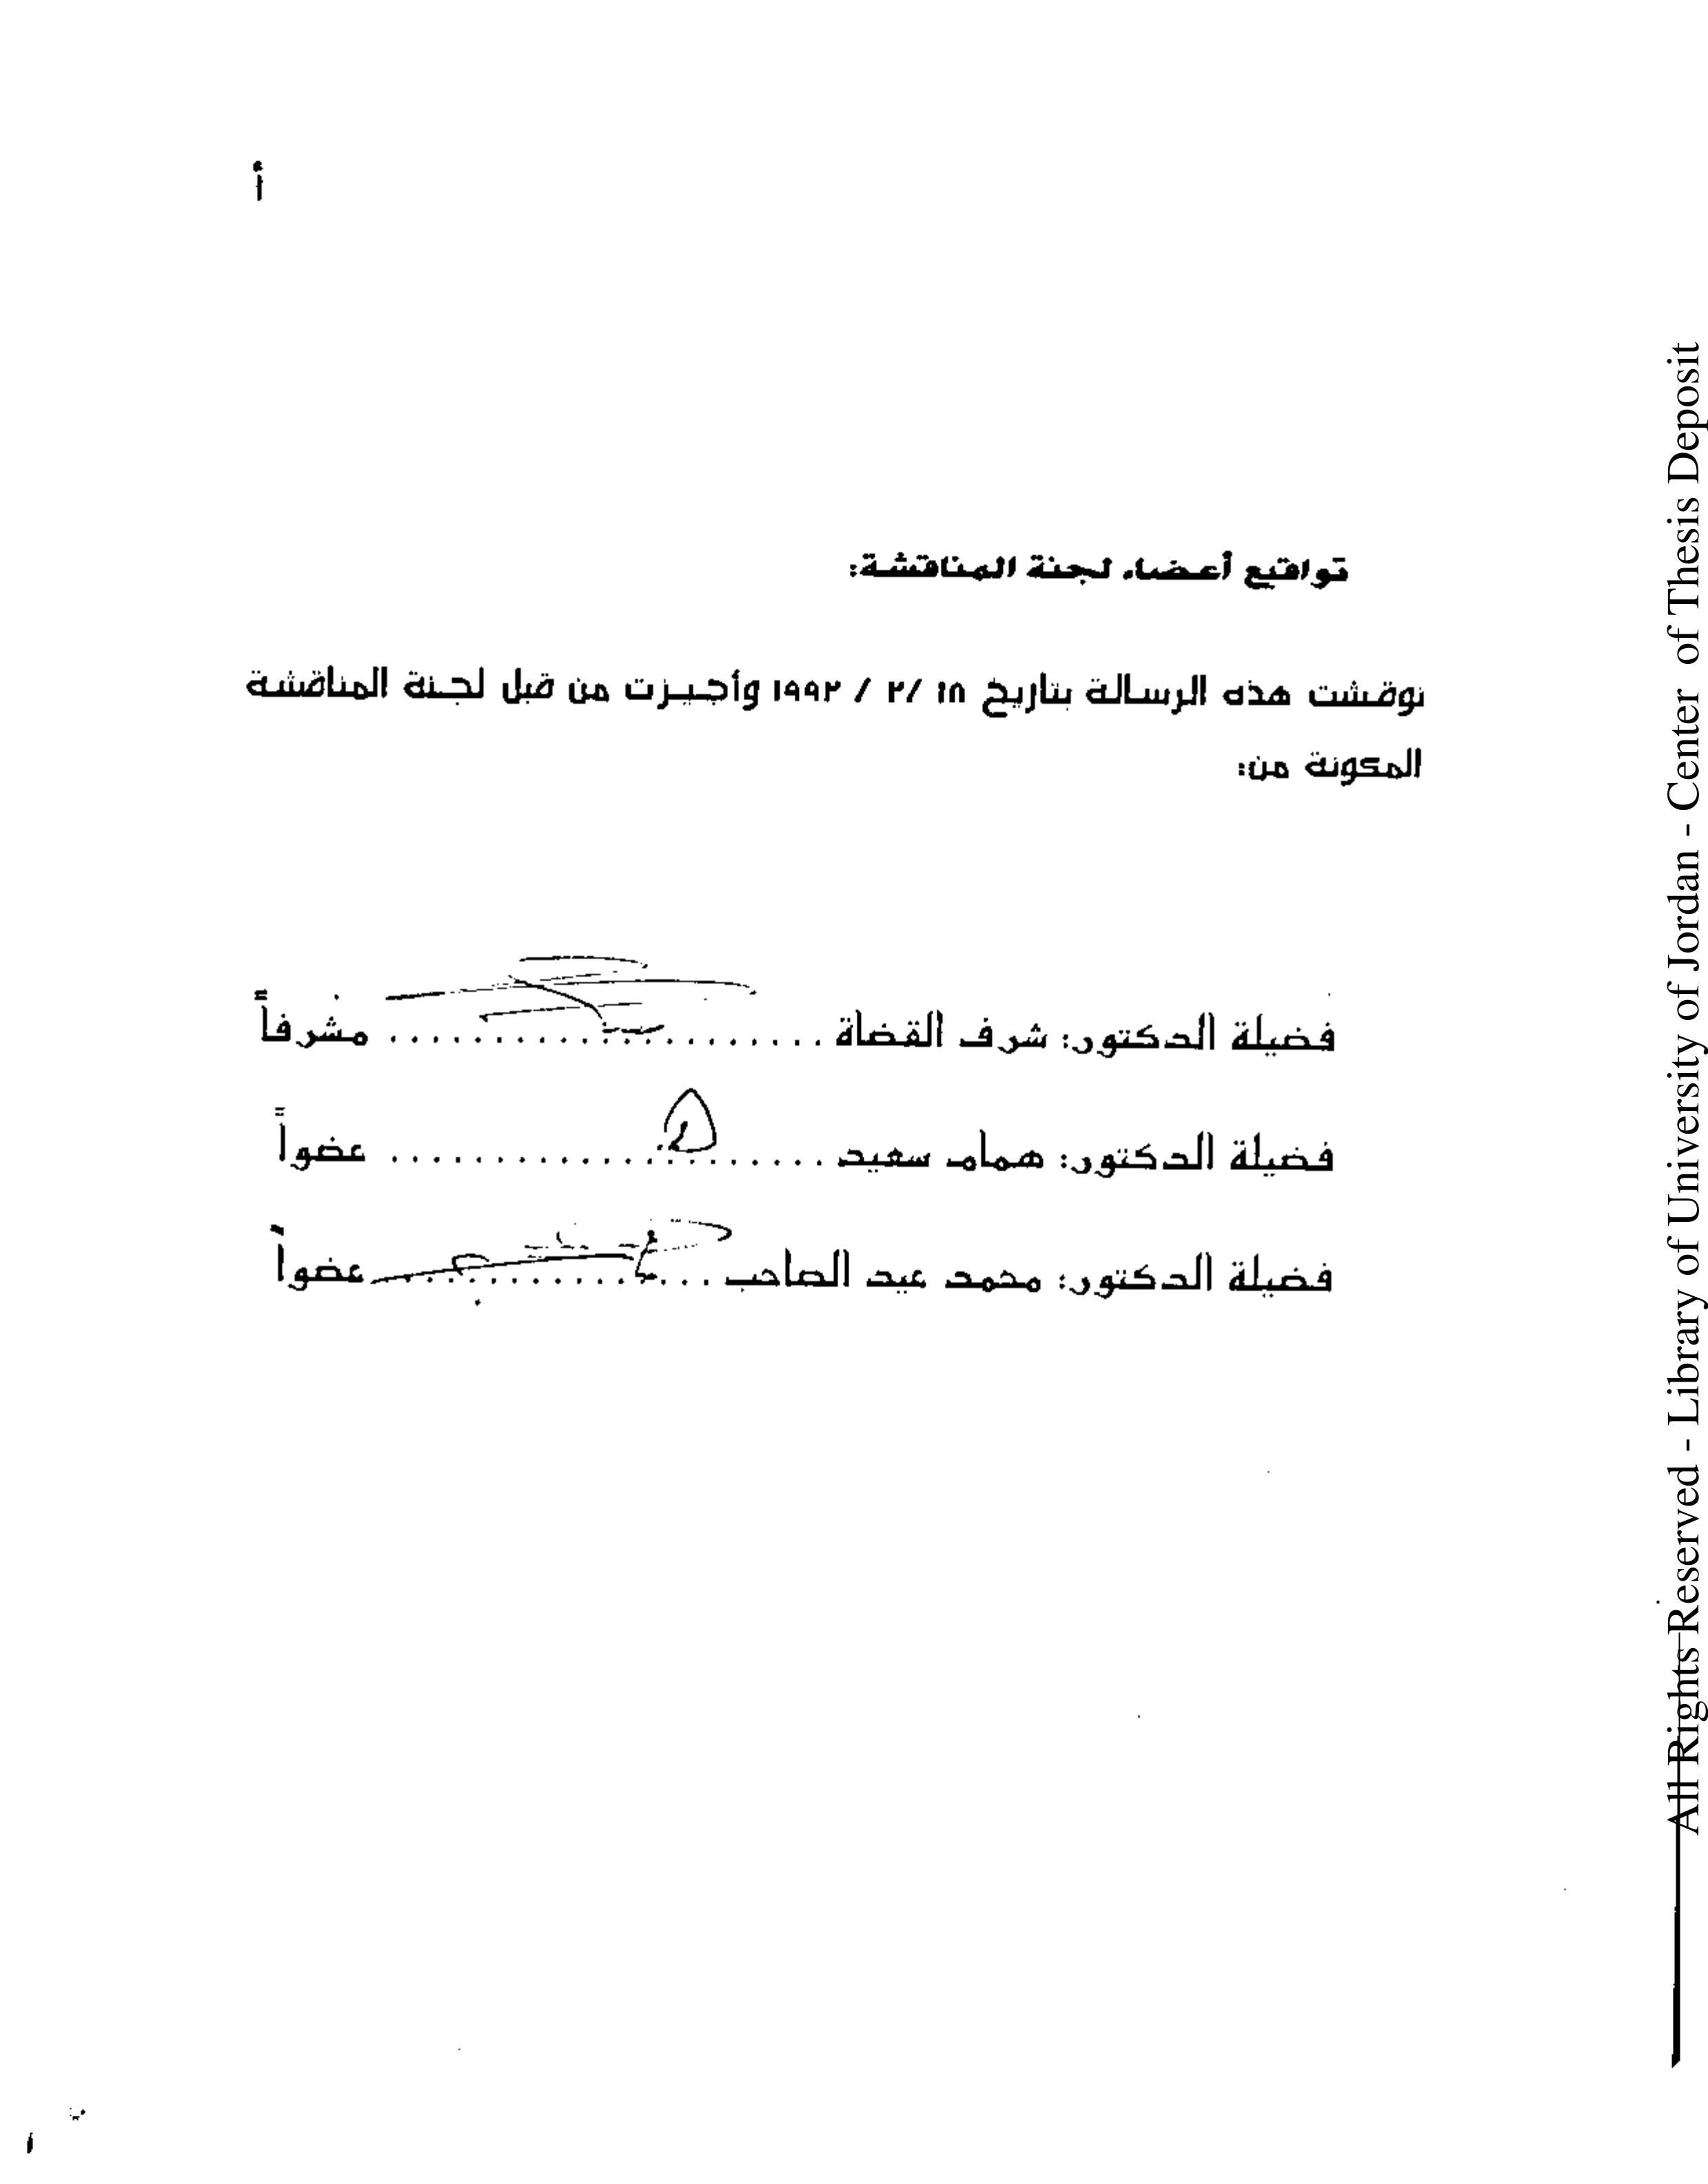 أ
تواقيع أعضاء لجنة المناقشة:
نوقشت هذه الرسالة بتاريخ ١٨ /٢ / ١٩٩٢ وأجيزت من قبل لجنة المناقشة
المكونة من:
فضيلة الدكتور: شرف القضاة ..................... مشرفاً
فضيلة الدكتور: همام سعيد ..................... عضواً
فضيلة الدكتور: محمد عيد الصاحب ................ عضواً
All Rights Reserved - Library of University of Jordan - Center of Thesis Deposit